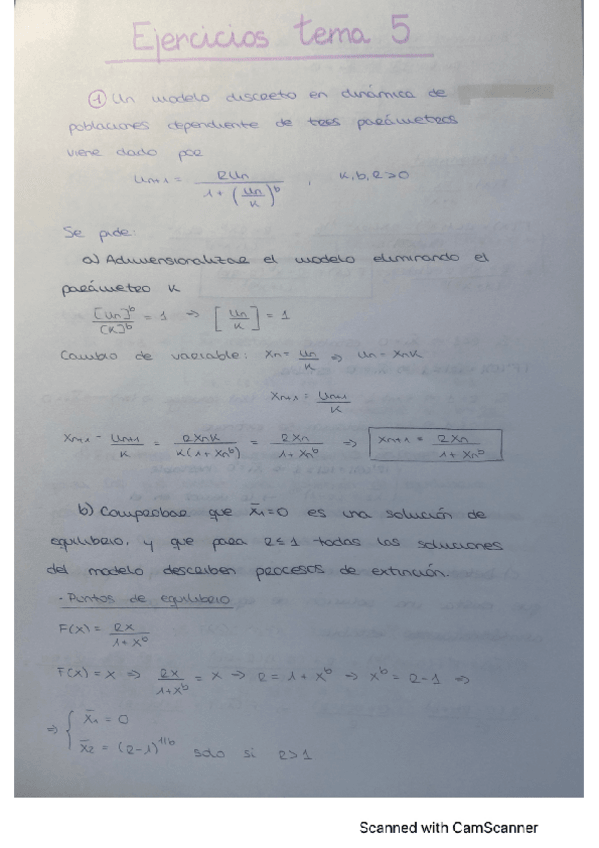 Ejercicios tema 5
① Un modelo discreto en dinámica de
poblaciones dependiente de tres parámetros
viene dado por
Un+1 = RUn / (1 + (Un/K)^b) , K, b, R > 0
Se pide:
a) Adimensionalizar el modelo eliminando el
parámetro K
[Un]^b / [K]^b = 1 ⇒ [Un/K] = 1
Cambio de variable: Xn = Un/K ⇒ Un = XnK
Xn+1 = Un+1/K
Xn+1 = Un+1/K = RXnK / (K(1 + Xn^b)) = RXn / (1 + Xn^b) ⇒ Xn+1 = RXn / (1 + Xn^b)
b) Comprobar que x̄1 = 0 es una solución de
equilibrio, y que para R ≤ 1 todas las soluciones
del modelo describen procesos de extinción.
· Puntos de equilibrio
F(x) = Rx / (1 + x^b)
F(x) = x ⇒ Rx / (1 + x^b) = x → R = 1 + x^b → x^b = R - 1 ⇒
⇒ { x̄1 = 0
x̄2 = (R - 1)^1/b solo si R > 1
Scanned with CamScanner